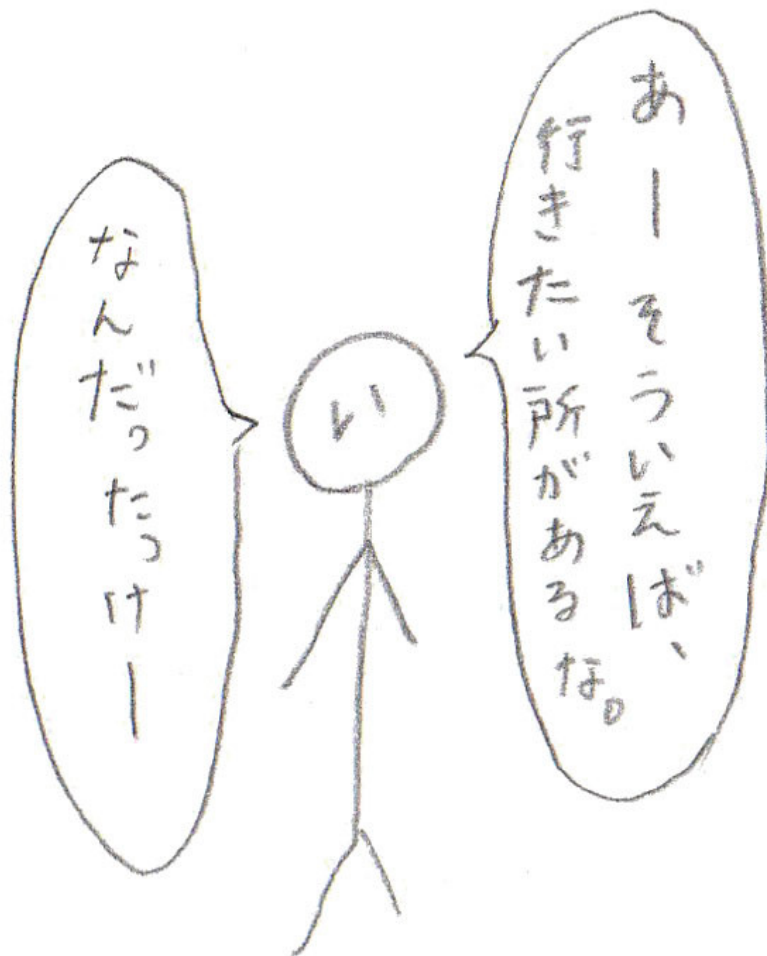 あーそういえば、
行きたい所があるな。
い
なんだったっけー